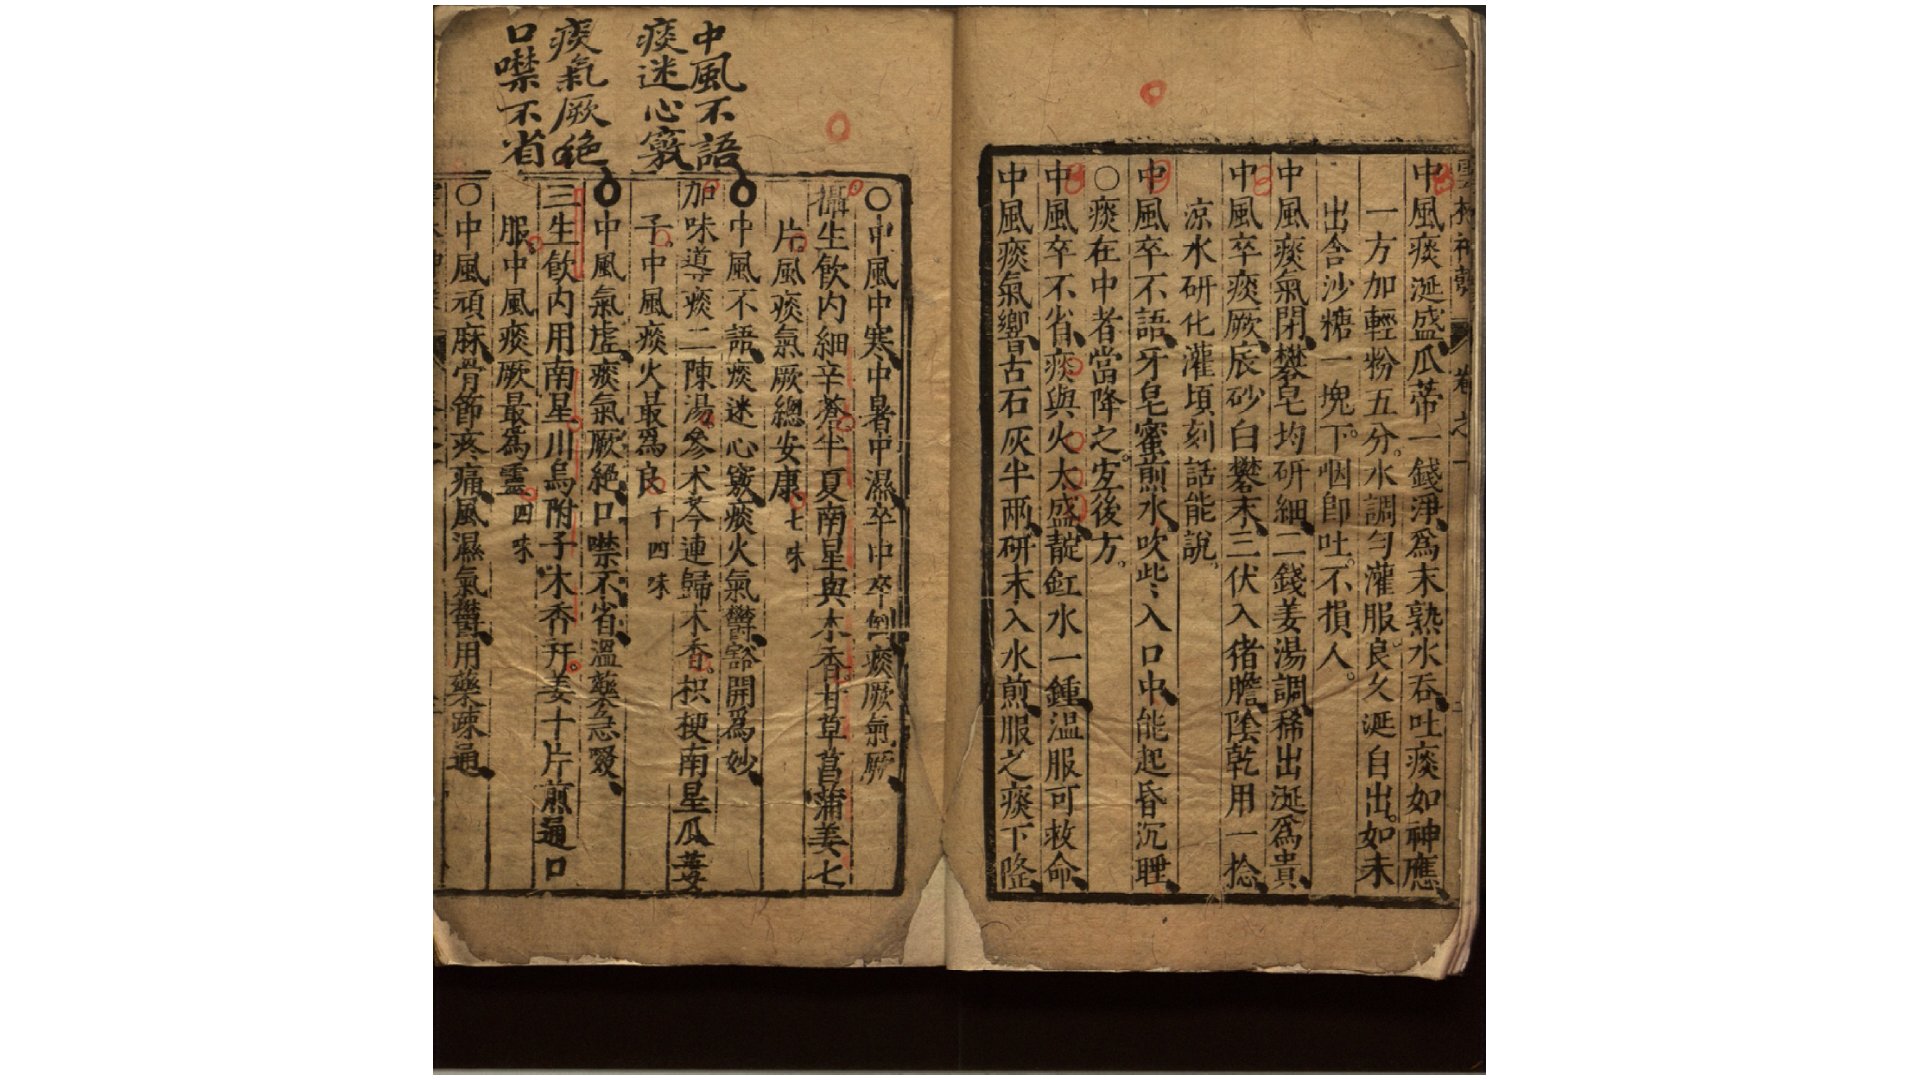 雲林神彀 卷之一
中風痰涎盛瓜蒂一錢淨為末熟水吞吐痰如神應
一方加輕粉五分水調勻灌服良久涎自出如未
出含沙糖一塊下咽即吐不損人
中風痰氣閉礬皂均研細二錢姜湯調稀出涎為貴
中風卒痰厥辰砂白礬末三伏入猪膽陰乾用一捻
涼水研化灌頃刻話能說
中風卒不語牙皂蜜煎水吹些入口中能起昏沉睡
○痰在中者當降之宜後方
中風卒不省痰與火太盛靛缸水一鍾溫服可救命
中風痰氣響古石灰半兩研末入水煎服之痰下降
中風不語
痰迷心竅
痰氣厥絕
口噤不省
○中風中寒中暑中濕卒中卒倒痰厥氣厥
攝生飲內細辛蒼半夏南星與木香甘草菖蒲姜七
片風痰氣厥總安康 七味
○中風不語痰迷心竅痰火氣鬱豁開為妙
加味導痰二陳湯參朮芩連歸木香枳梗南星瓜蔞
子中風痰火最為良 十四味
○中風氣虛痰氣厥絕口噤不省溫藥急啜
三生飲內用南星川烏附子木香并姜十片煎通口
服中風痰厥最為靈 四味
○中風頑麻骨節疼痛風濕氣鬱用藥疎通